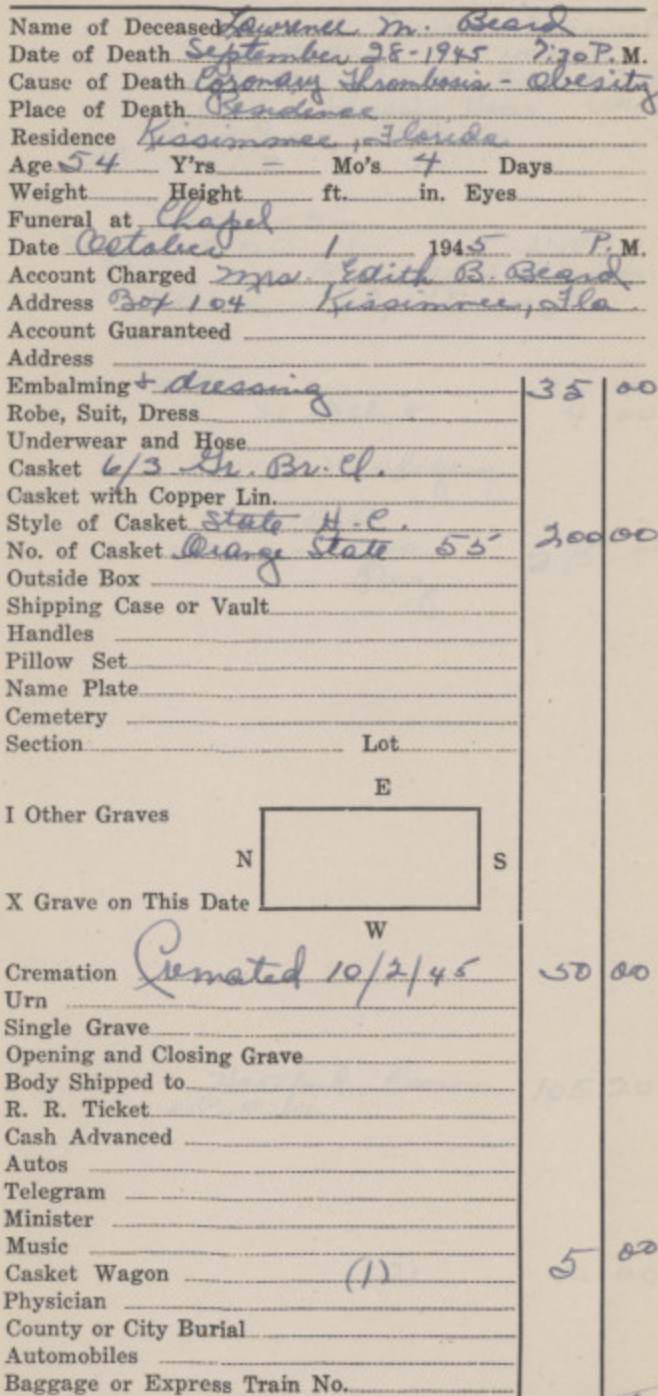 Name of Deceased Lawrence M. Beard
Date of Death September 28-1945 7:30 P. M.
Cause of Death Coronary Thrombosis - Obesity
Place of Death Residence
Residence Kissimmee, Florida
Age 54 Y'rs - Mo's 4 Days
Weight Height ft. in. Eyes
Funeral at Chapel
Date October 1 1945 P. M.
Account Charged Mrs. Edith B. Beard
Address Box 104 Kissimmee, Fla.
Account Guaranteed
Address
Embalming + dressing 35 00
Robe, Suit, Dress
Underwear and Hose
Casket 6/3 Gr. Br. Cl.
Casket with Copper Lin.
Style of Casket State H.C.
No. of Casket Orange State 55 200 00
Outside Box
Shipping Case or Vault
Handles
Pillow Set
Name Plate
Cemetery
Section Lot
E
I Other Graves
N S
X Grave on This Date
W
Cremation Cremated 10/2/45 50 00
Urn
Single Grave
Opening and Closing Grave
Body Shipped to
R. R. Ticket
Cash Advanced
Autos
Telegram
Minister
Music
Casket Wagon (1) 5 00
Physician
County or City Burial
Automobiles
Baggage or Express Train No.